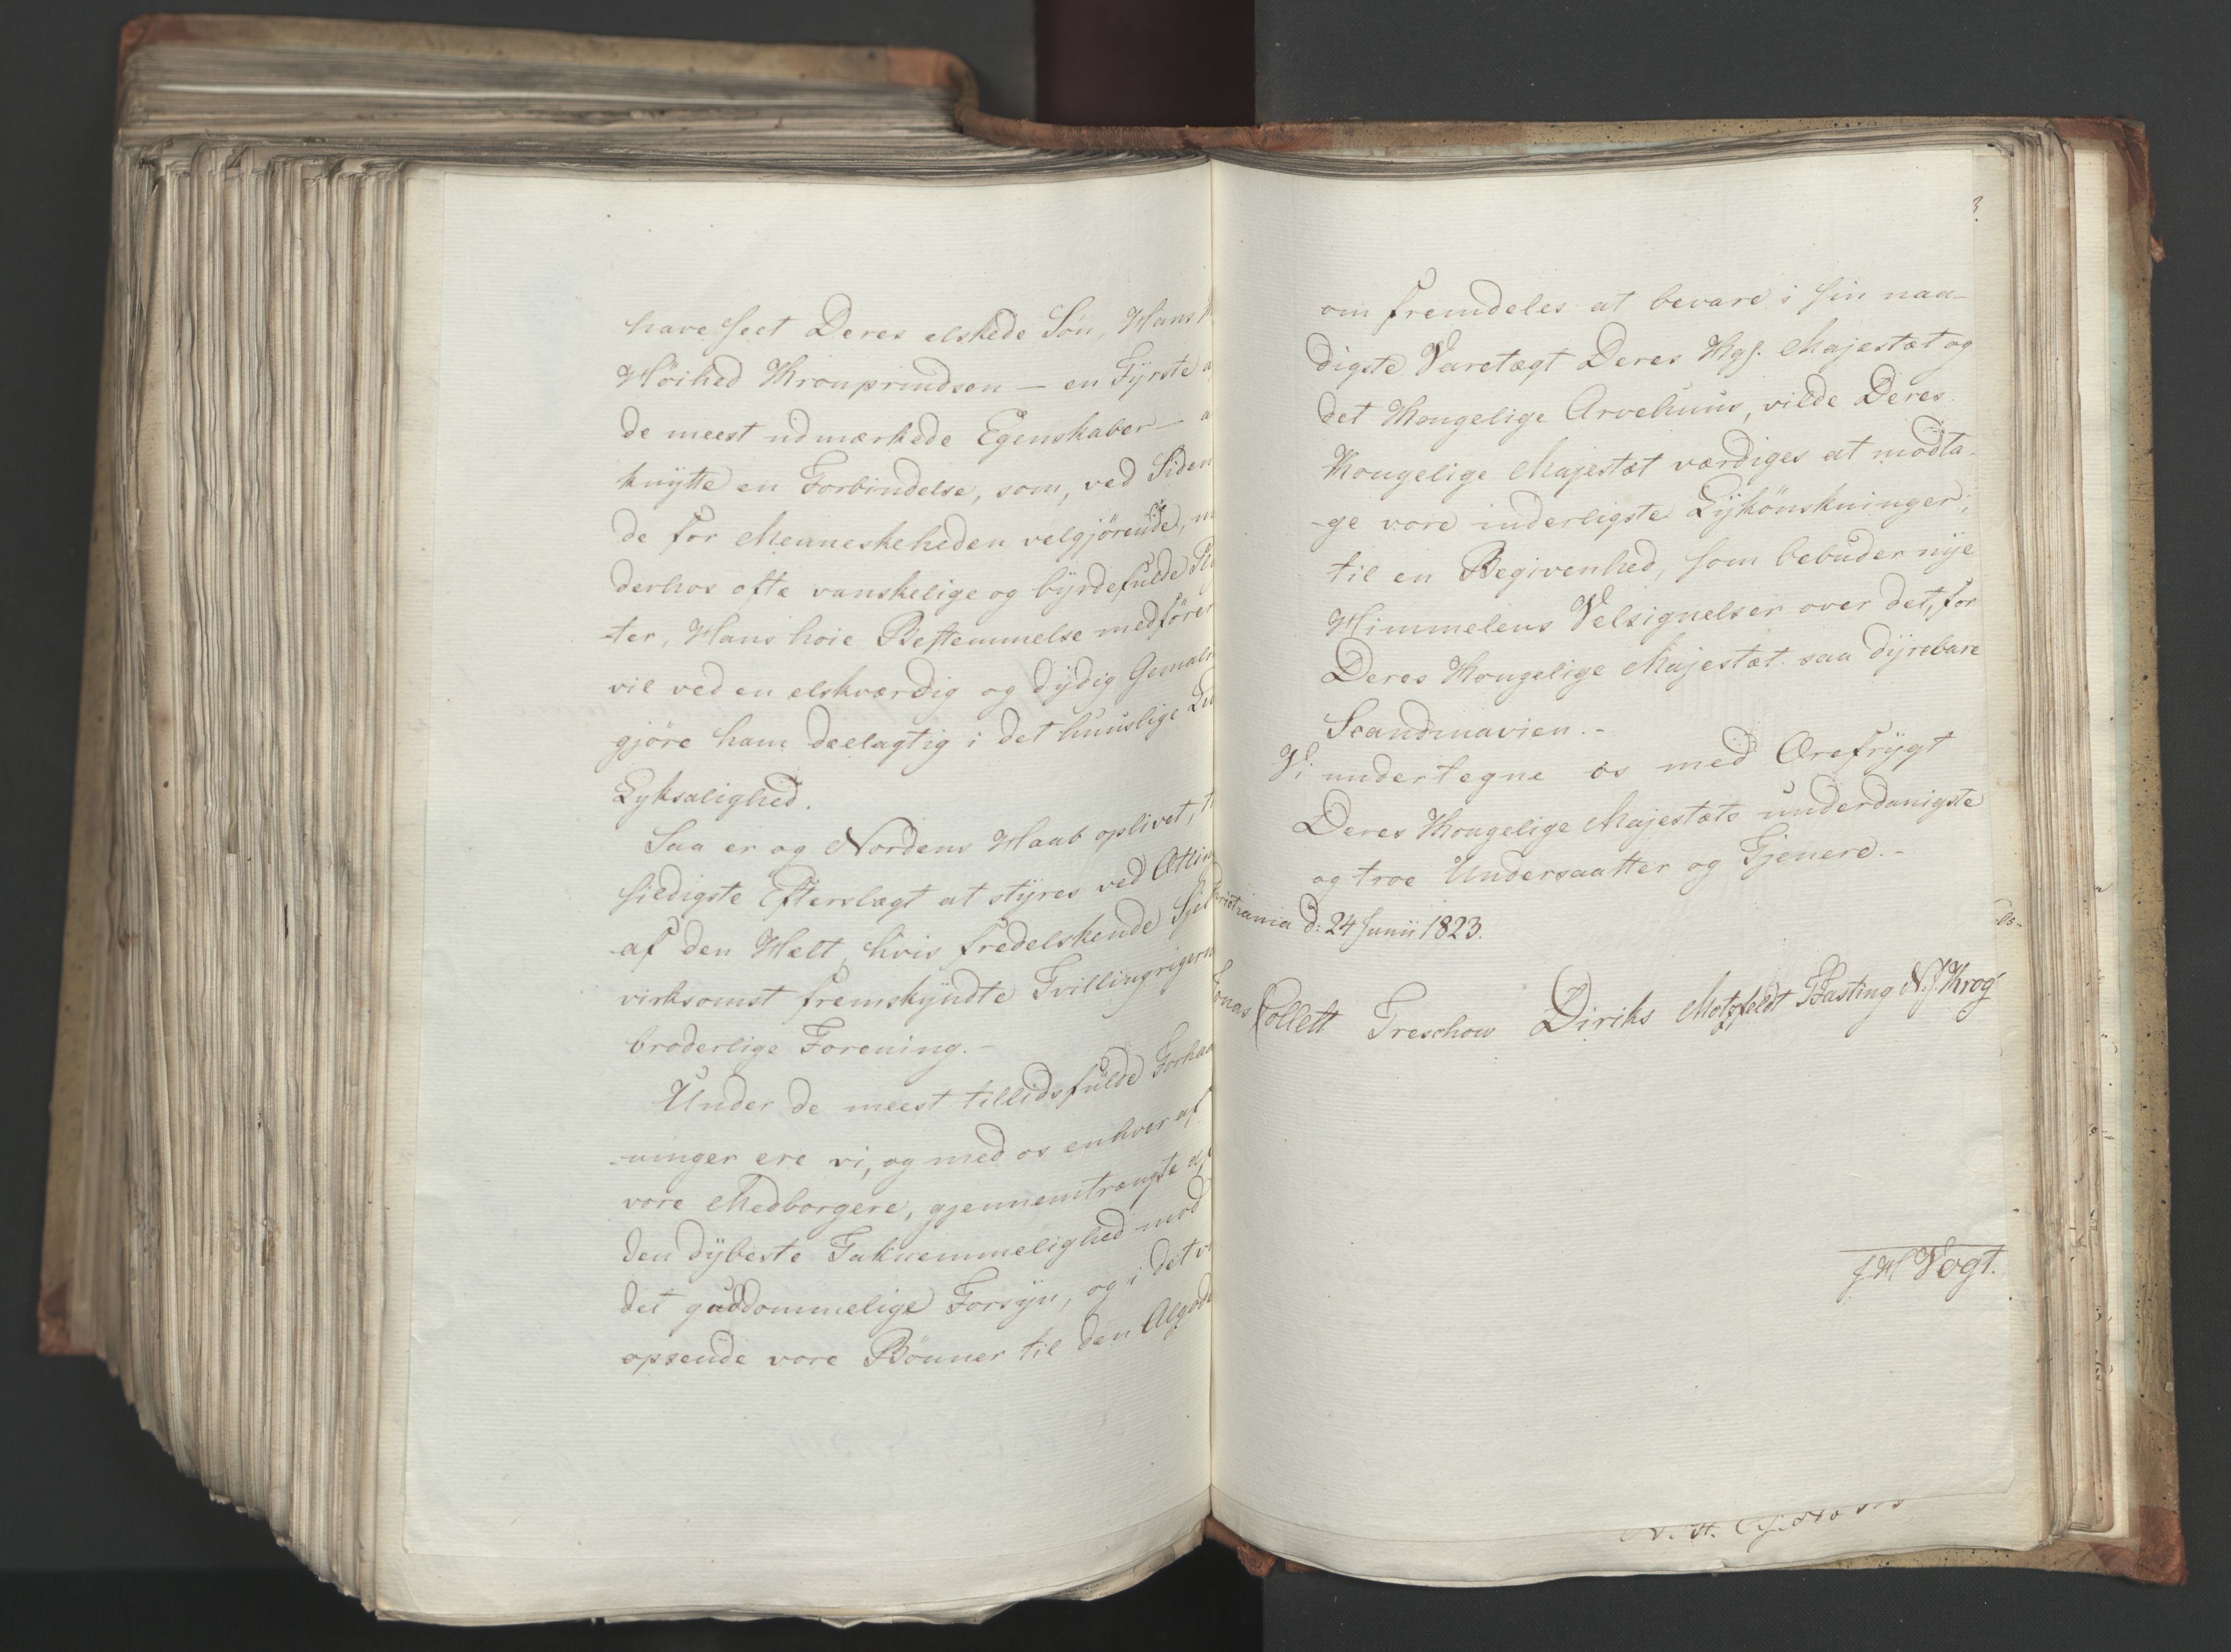 have seet Deres elskede Søn, Hans
Høihed Kronprindsen — en Fÿrste
de meest udmærkede Egenskaber —
knÿtte en Forbindelse, som, ved Siden
de for Menneskeheden velgjørende,
derhos ofte vanskelige og bÿrdefulde
-ter, Hans høie Bestemmelse medfører
vil ved en elskværdig og dÿdig
gjøre ham deelagtig i det huuslige
Lyksalighed.
Saa er og Nordens Haab oplivet,
sildigste Efterslægt at stÿres ved
af den Helt, hvis fredelskende
virksomst fremskÿndte
broderlige Forening.-
Under de meest tillidsfulde
-ninger ere vi, og med os enhver af
vore Medborgere, gjennemtrængte af
den dÿbeste Taknemmelighed mod
det guddommelige Forsÿn, og i det
opsende vore Bønner til den
3.
om fremdeles at bevare i sin naa-
digste Varetægt Deres Kgl. Majestæt og
det Kongelige Arvehuus, vilde Deres
Kongelige Majestæt værdiges at modta-
-ge vore inderligste Lÿkønskninger,
til en Begivenhed, som bebuder nÿe
Himmelens Velsignelser over det, for
Deres Kongelige Majestæt saa dÿrebare
Scandinavien.-
Vi undertegne os med Ærefrÿgt
Deres Kongelige Majestæts underdanigste
og troe Undersaatter og Tjenere.-
d: 24 Junii 1823.
Jonas Collett Treschow Diriks Motzfeldt Fasting N. J. Krog
J H Vogt.